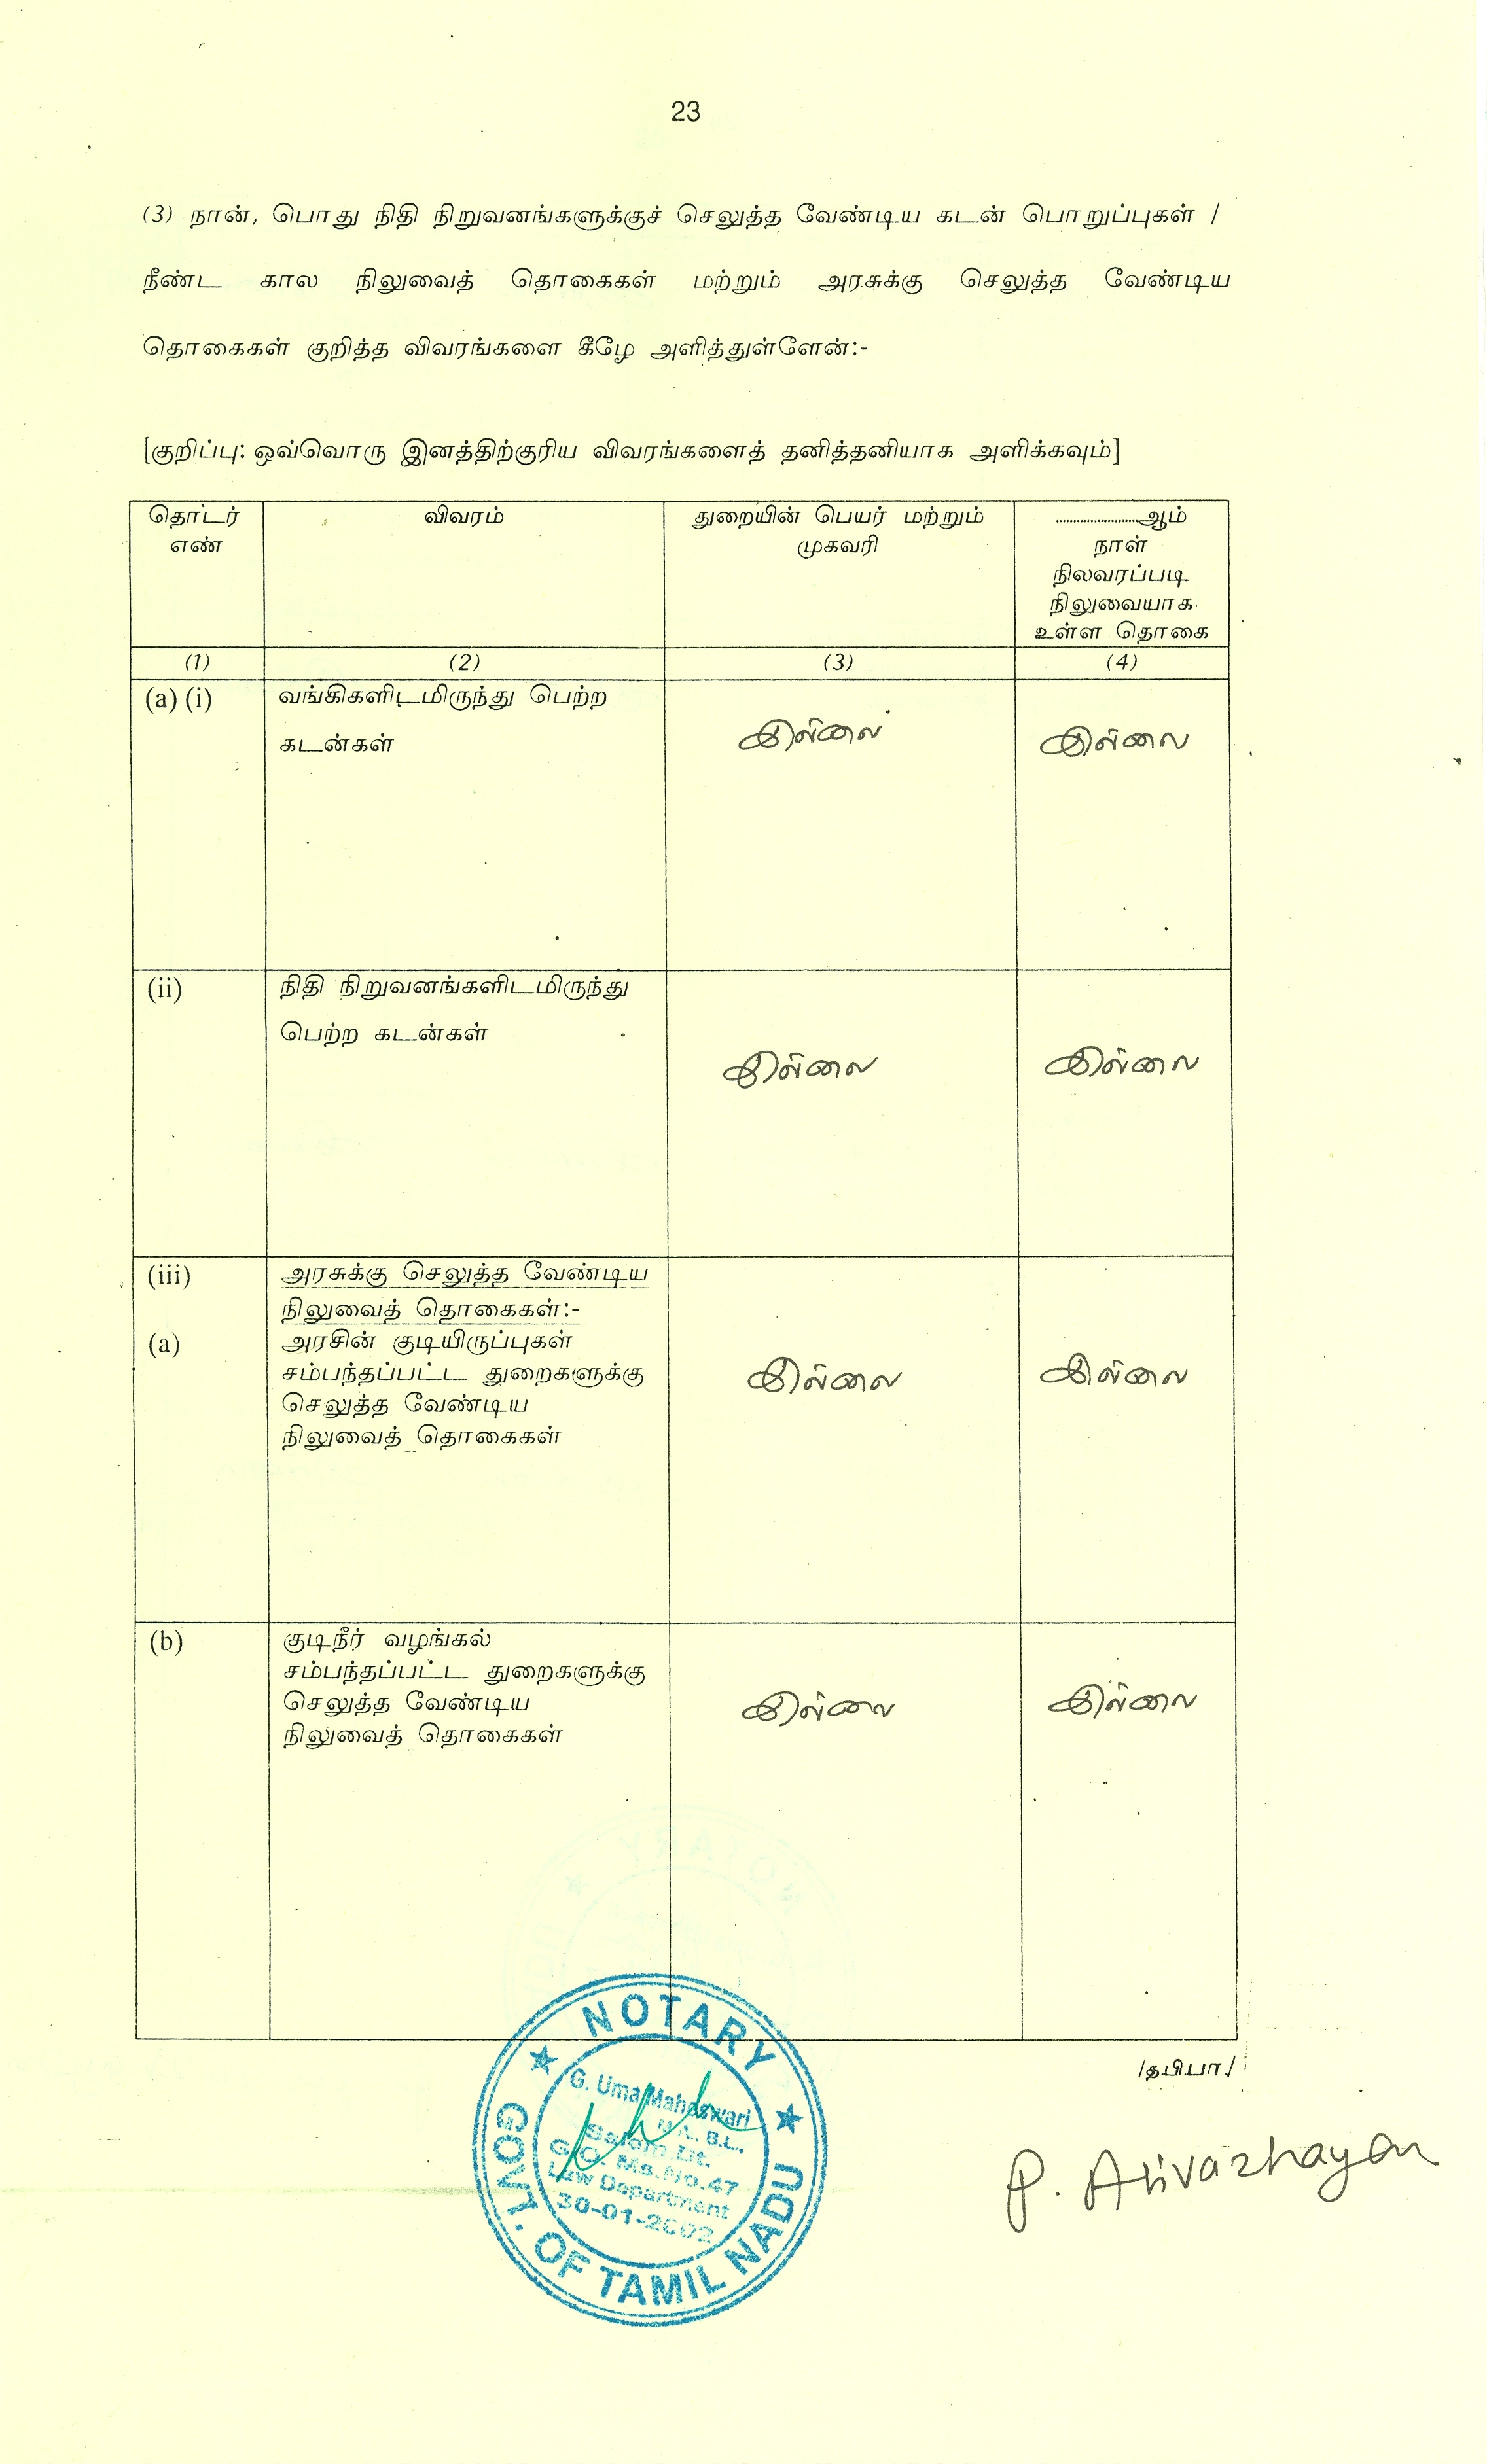 23
(3) நான், பொது நிதி நிறுவனங்களுக்குச் செலுத்த வேண்டிய கடன் பொறுப்புகள் /
நீண்ட கால நிலுவைத் தொகைகள் மற்றும் அரசுக்கு செலுத்த வேண்டிய
தொகைகள் குறித்த விவரங்களை கீழே அளித்துள்ளேன்:-
[குறிப்பு: ஒவ்வொரு இனத்திற்குரிய விவரங்களைத் தனித்தனியாக அளிக்கவும்]
தொடர்
எண்
விவரம்
துறையின் பெயர் மற்றும்
முகவரி
........................ஆம்
நாள்
நிலவரப்படி
நிலுவையாக
உள்ள தொகை
(1) (2) (3) (4)
(a) (i)
வங்கிகளிடமிருந்து பெற்ற
கடன்கள்
இல்லை இல்லை
(ii)
நிதி நிறுவனங்களிடமிருந்து
பெற்ற கடன்கள்
இல்லை இல்லை
(iii)
அரசுக்கு செலுத்த வேண்டிய
நிலுவைத் தொகைகள்:-
(a)
அரசின் குடியிருப்புகள்
சம்பந்தப்பட்ட துறைகளுக்கு
செலுத்த வேண்டிய
நிலுவைத் தொகைகள்
இல்லை இல்லை
(b)
குடிநீர் வழங்கல்
சம்பந்தப்பட்ட துறைகளுக்கு
செலுத்த வேண்டிய
நிலுவைத் தொகைகள்
இல்லை இல்லை
/த.பி.பா./
NOTARY
G. Uma Maheswari
M.A., B.L.,
Salem Dt.
G.O. Ms.No.47
Law Department
30-01-2002
GOVT. OF TAMIL NADU
P. Arivazhagan